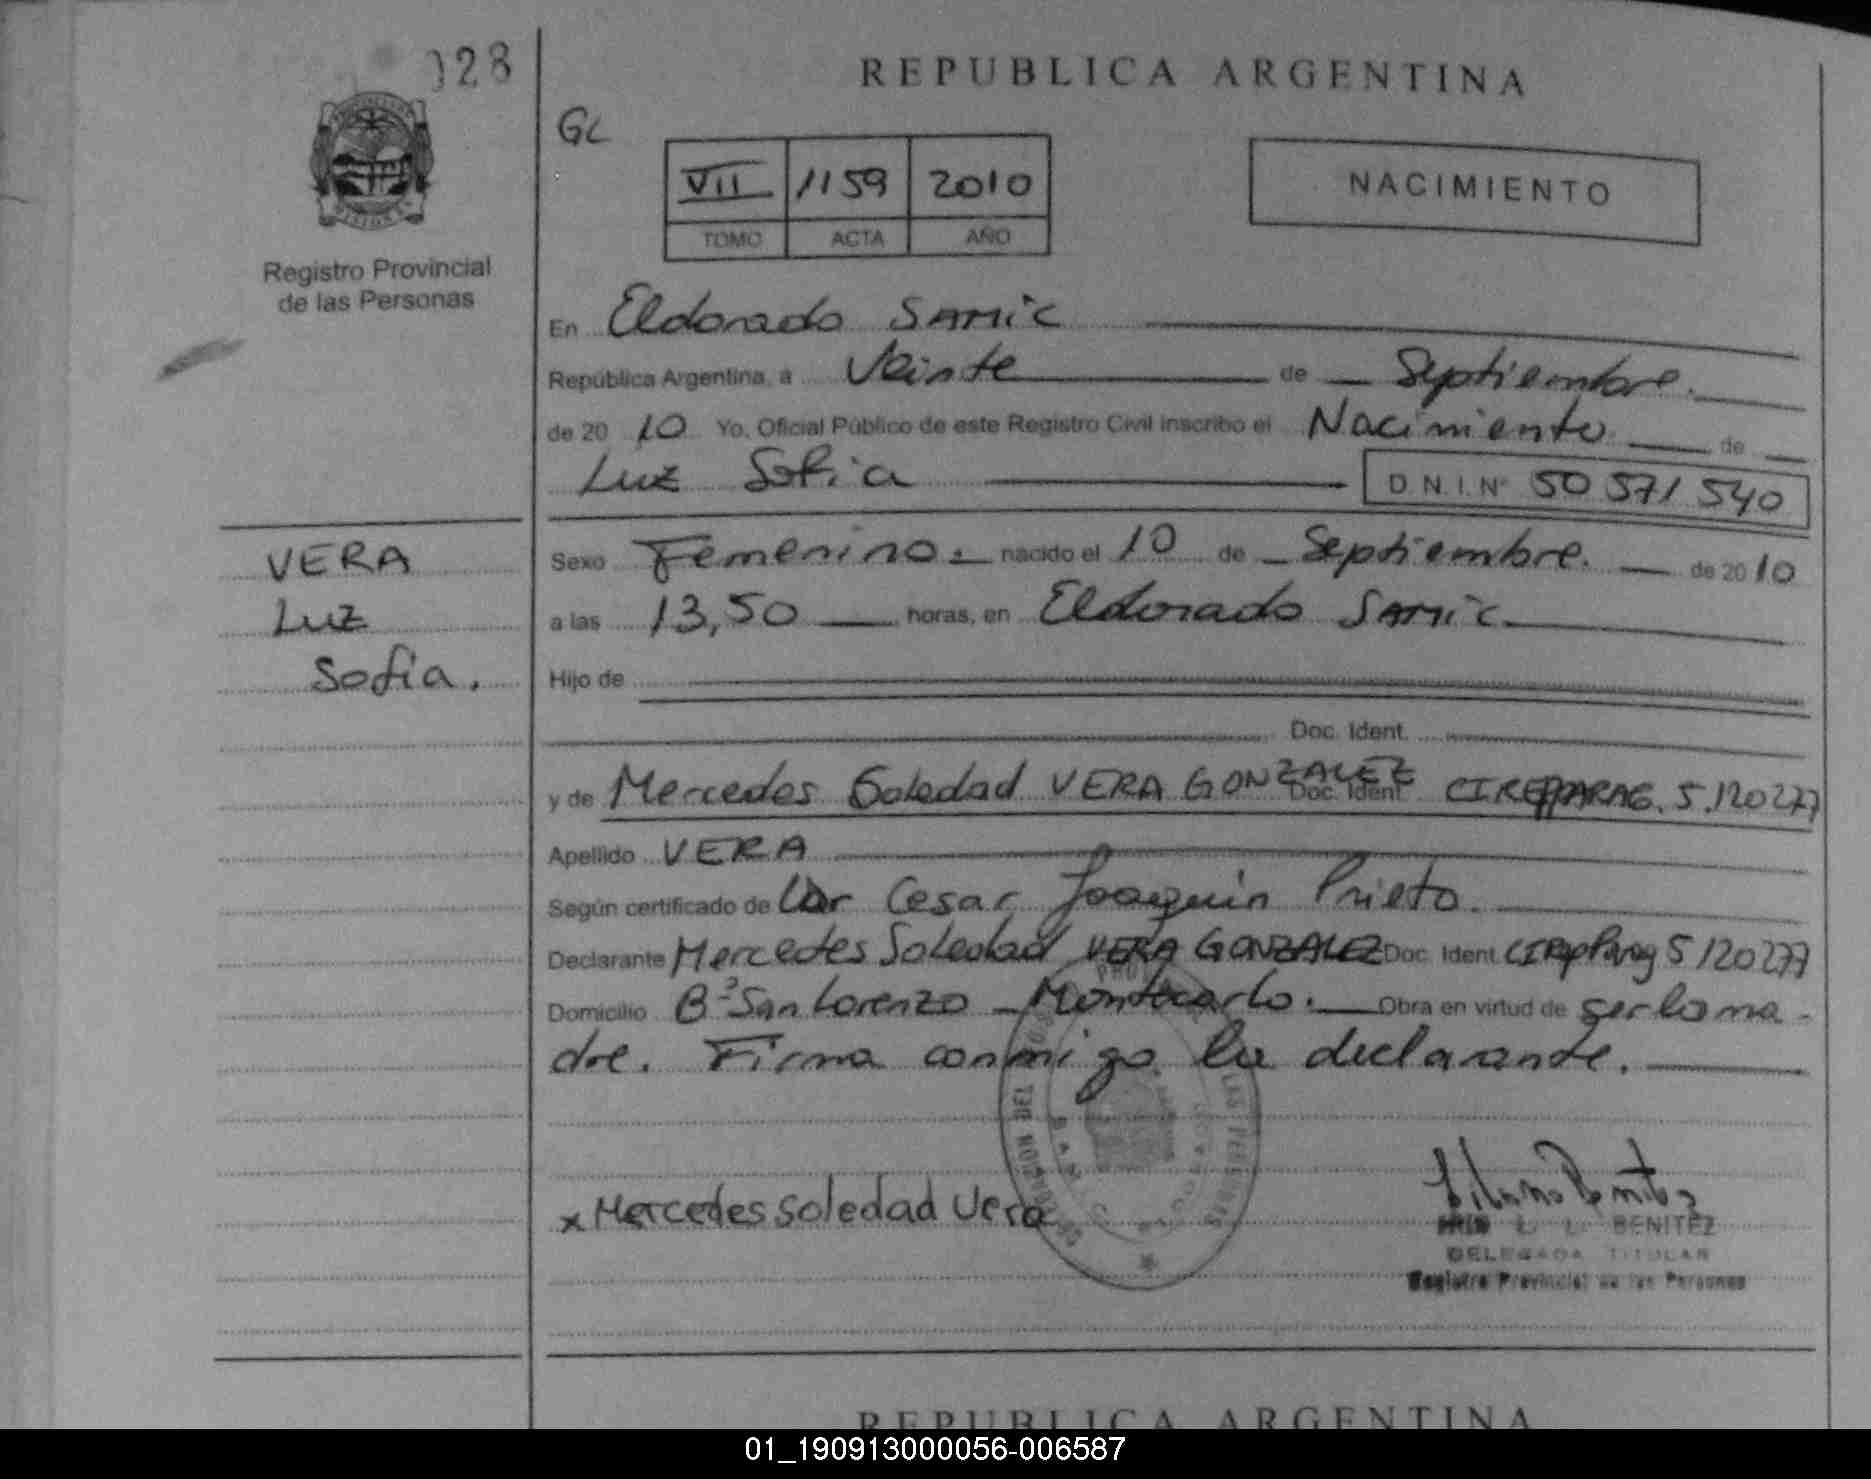 028
REPUBLICA ARGENTINA
GL
VII 1159 2010
TOMO ACTA AÑO
NACIMIENTO
Registro Provincial
de las Personas
En Eldorado SAMIC
República Argentina, a Veinte de Septiembre.
de 2010 Yo, Oficial Público de este Registro Civil inscribo el Nacimiento de
Luz Sofia D.N.I.Nº 50 571 540
VERA
Luz
Sofia.
Sexo Femenino. nacido el 10 de Septiembre. de 2010
a las 13,50 horas, en Eldorado SAMIC
Hijo de
Doc. Ident.
y de Mercedes Soledad VERA GONZALEZ Doc. Ident. 5.120277
Apellido VERA
Según certificado de Cesar Joaquin Prieto.
Declarante Mercedes Soledad VERA GONZALEZ Doc. Ident. 5120277
Domicilio Bº San Lorenzo - Montecarlo. Obra en virtud de ser la ma-
dre. Firma conmigo la declarante.
x Mercedes Soledad Vera
BENITEZ
DELEGADA TITULAR
Registro Provincial de las Personas
REPUBLICA ARGENTINA
01_190913000056-006587